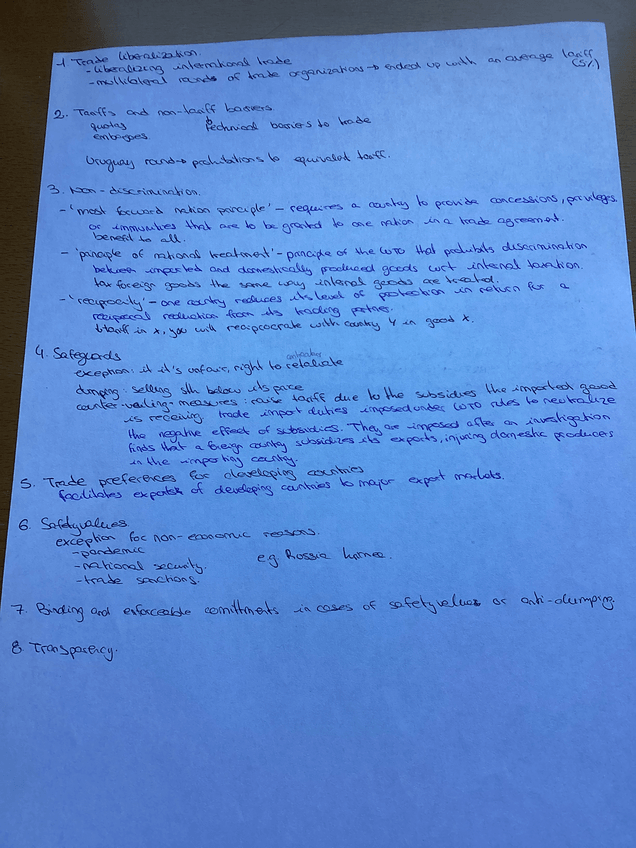 1 Trade liberalization.
- liberalizing international trade
- multilateral rounds of trade organizations → ended up with an average tariff
(5%)
2. Tariffs and non-tariff barriers
quotas technical barriers to trade
embargoes
Uruguay round → prohibitions to equivalent tariff.
3. Non-discrimination.
- 'most forward nation principle' - requires a country to provide concessions, privileges,
or immunities that are to be granted to one nation in a trade agreement.
benefit to all.
- 'principle of national treatment' - principle of the WTO that prohibits discrimination
between imported and domestically produced goods wrt internal taxation.
tax foreign goods the same way internal goods are treated.
- 'reciprocity' - one country reduces its level of protection in return for a
reciprocal reduction from its trading partner.
tariff in x, you will reciprocrate with country Y in good x.
4. Safeguards
exception: if it's unfair, right to retaliate
dumping: selling sth below its price
counter-vailing-measures: raise tariff due to the subsidies the imported good
is receiving. trade import duties imposed under WTO rules to neutralize
the negative effect of subsidies. They are imposed after an investigation
finds that a foreign country subsidizes its exports, injuring domestic producers
in the importing country.
5. Trade preferences for developing countries
facilitates exports of developing countries to major export markets.
6. Safetyvalues.
exception for non-economic reasons.
- pandemic
- national security. e.g. Russia
- trade sanctions.
7. Binding and enforceable comittments in cases of safetyvalues or anti-dumping.
8. Transparency.